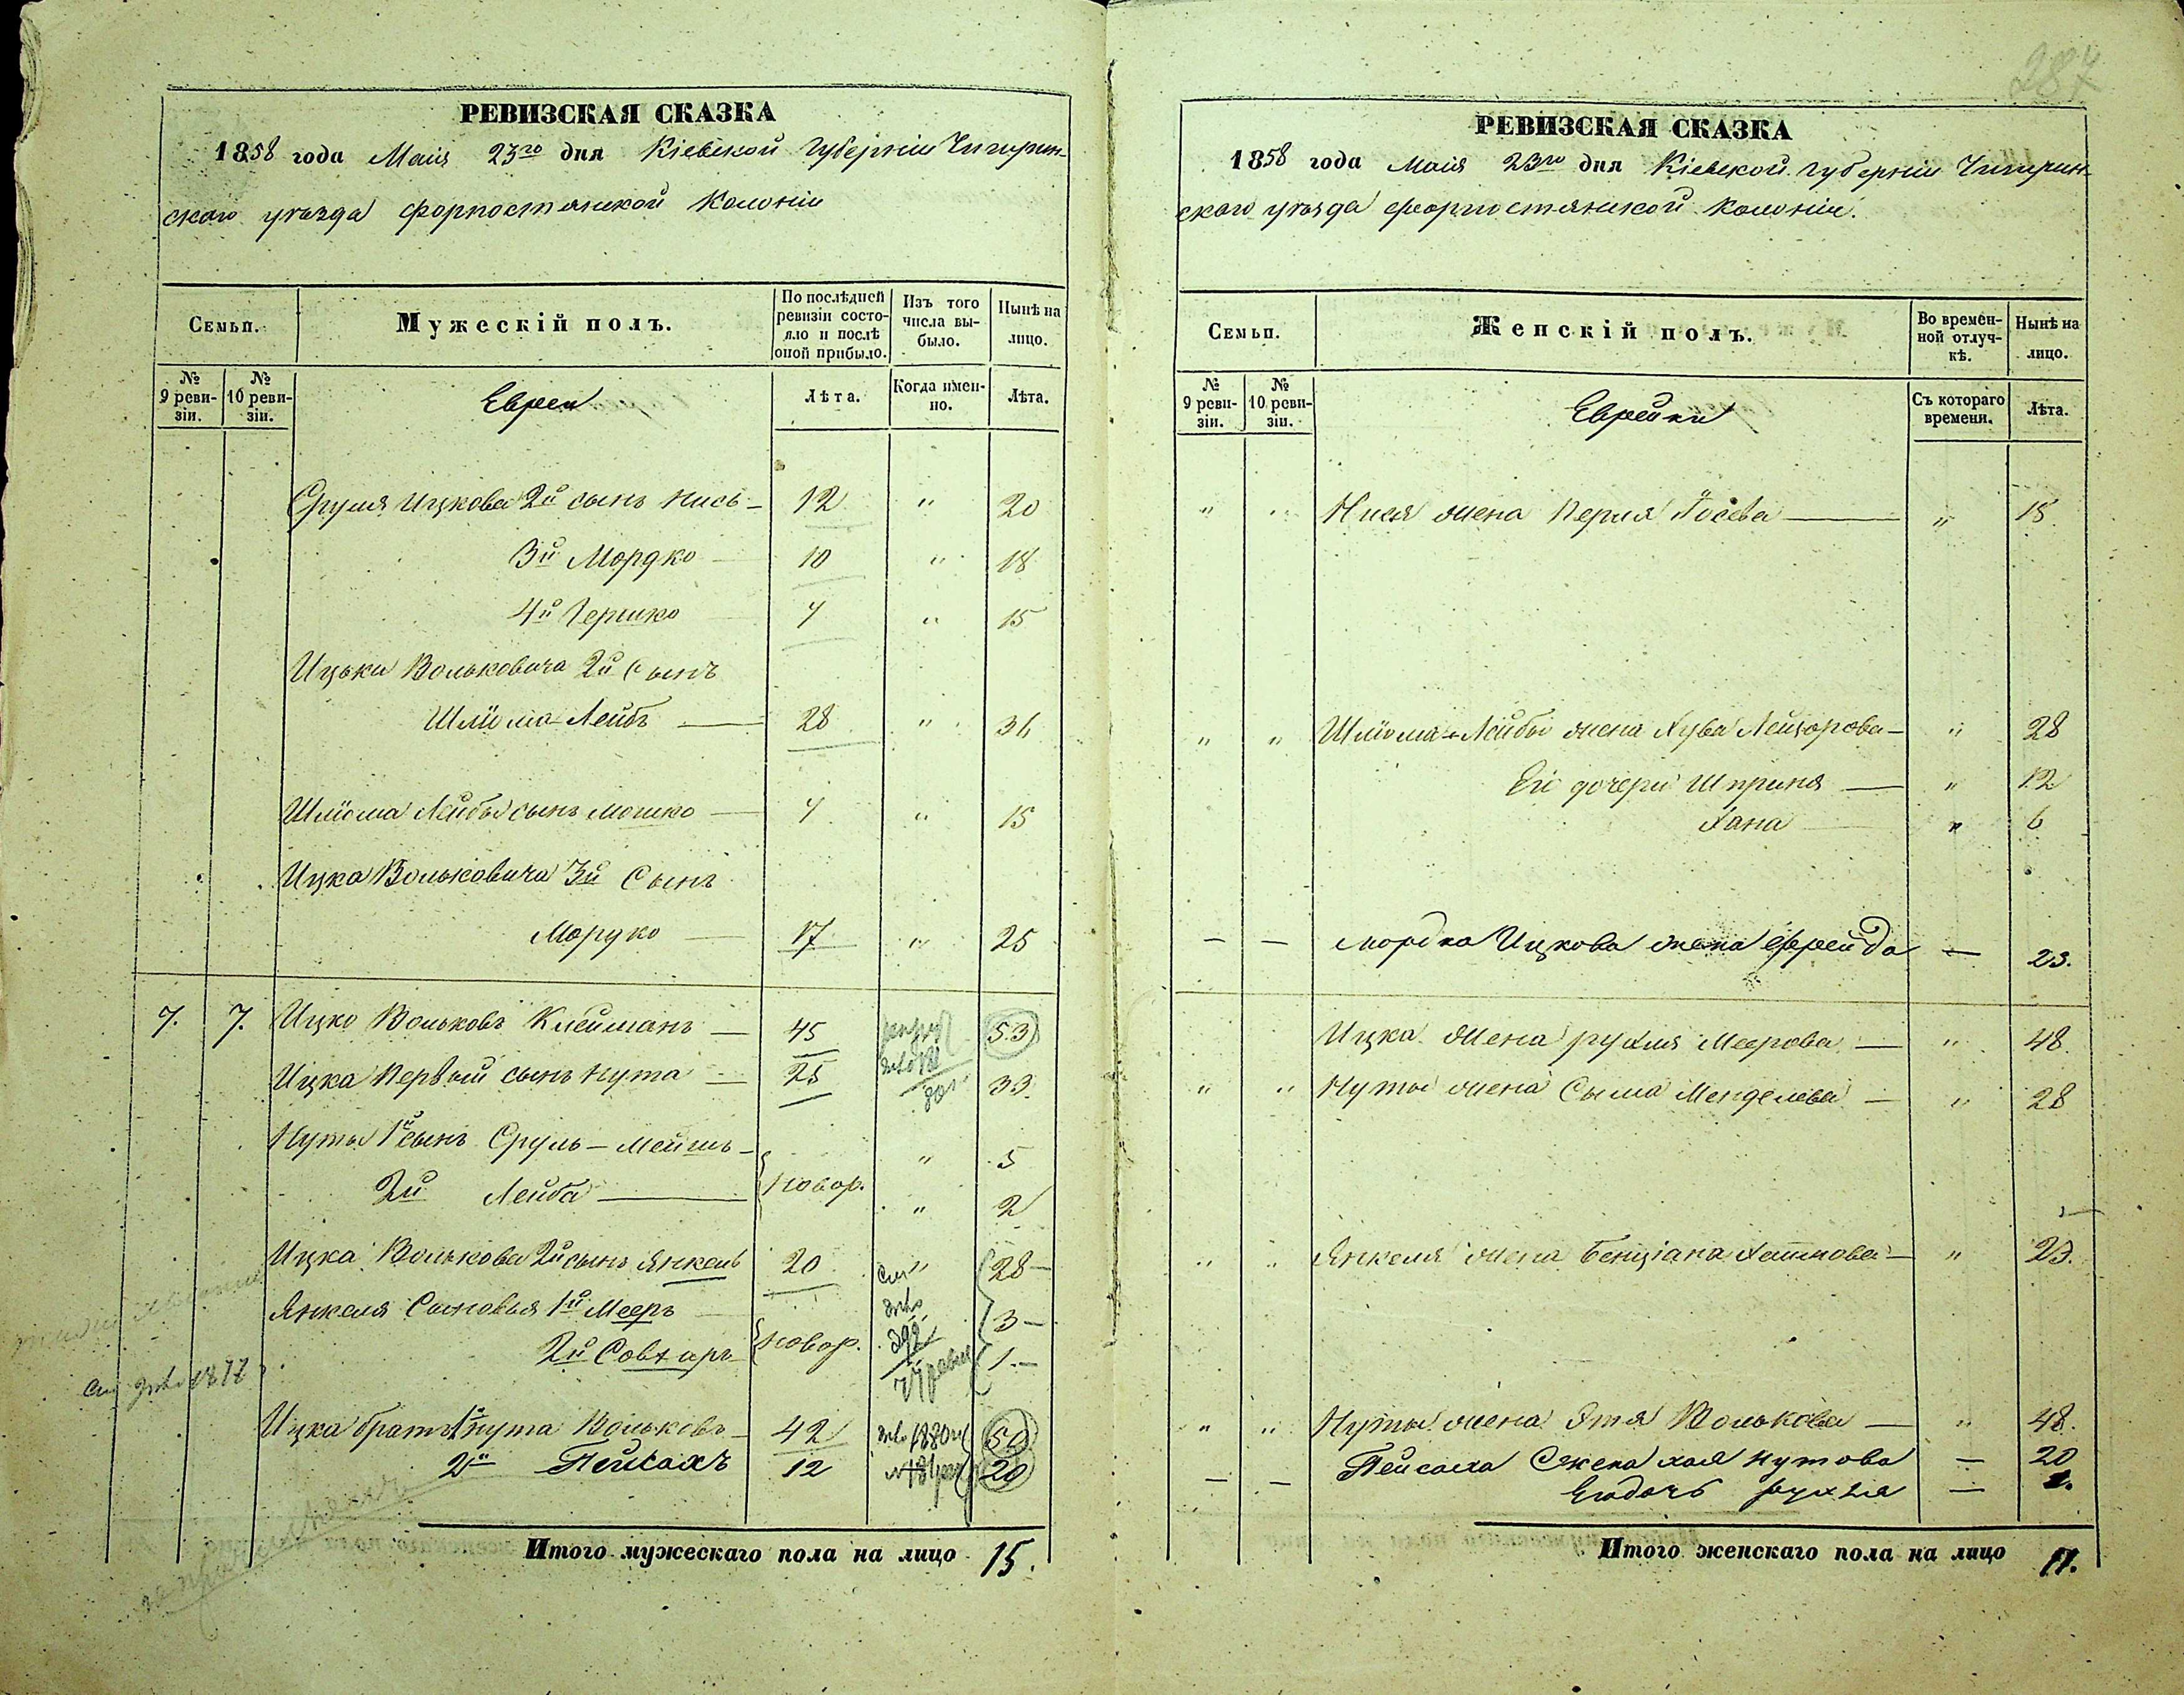 287
РЕВИЗСКАЯ СКАЗКА
1858 года Маія 23го дня Кіевской Губерніи Чигирин-
скаго уѣзда Форпостянской Колоніи
Семьи. Мужескій полъ. По послѣдней ревизіи состояло и послѣ оной прибыло. Изъ того числа выбыло. Нынѣ на лицо.
№ 9 ревизіи. № 10 ревизіи. Евреи Лѣта. Когда именно. Лѣта.
Сруля Ицкова 2й сынъ Нись — 12 " 20
3й Мордко — 10 " 18
4й Гершко 7 " 15
Ицьки Вольковича 2й Сынъ
Шліома-Лейбъ — 28 " 36
Шліома Лейбы сынъ Мошко — 7 " 15
Ицка Вольковича 3й Сынъ
Мордко — 17 " 25
7. 7. Ицко Вольковъ Клейманъ — 45 53
Ицка Первый сынъ Нута — 25 33.
Нуты 1й сынъ Сруль-Мейшъ — " 5
2й Лейба — новор. " 2
Ицка Волькова 2й сынъ Янкель 20 " 28 —
Янкеля Сыновья 1й Мееръ 3 —
2й Совхаръ новор. 1. —
1877
Ицка братъ 1й Нута Вольковъ — 42 1880 50
2й Пейсахъ 12 20
Итого мужескаго пола на лицо 15.
РЕВИЗСКАЯ СКАЗКА
1858 года Маія 23го дня Кіевской Губерніи Чигирин-
скаго уѣзда Форпостянской Колоніи.
Семьи. Женскій полъ. Во временной отлучкѣ. Нынѣ на лицо.
№ 9 ревизіи. № 10 ревизіи. Еврейки Съ котораго времени. Лѣта.
" " Нися жена Перля Іосева — " 18.
" " Шліома-Лейбы жена Хува Лейзорова — " 28
Его дочери Шприня — " 12
Хана — " 6
— — Мордка Ицкова жена Фрейда — 23.
Ицка жена Рухля Меерова — " 48.
" " Нуты жена Сыма Менделева — " 28
" " Янкеля жена Бенціана — " 23.
" " Нуты жена Этя Волькова — " 48.
— — Пейсаха жена Хая Нутова — 20
Его дочь Рухля — 1.
Итого женскаго пола на лицо 11.